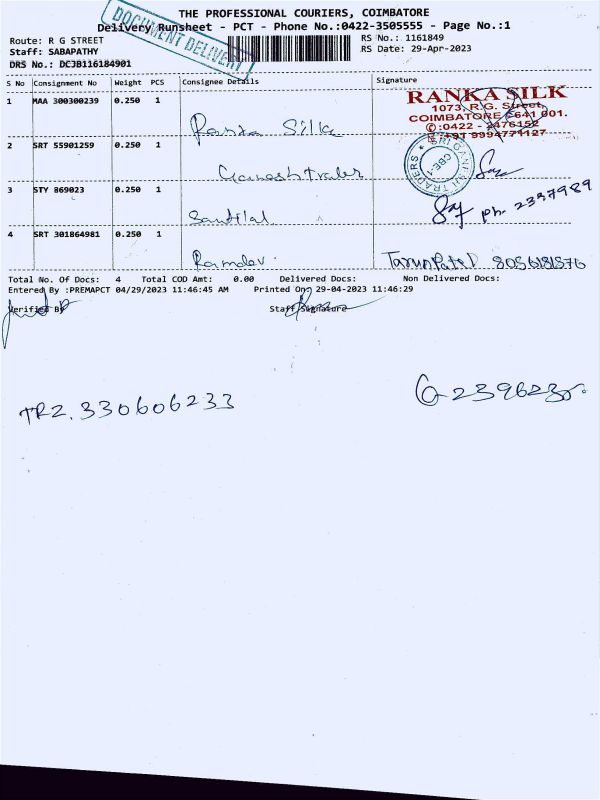 THE PROFESSIONAL COURIERS, COIMBATORE
Delivery Runsheet - PCT - Phone No.:0422-3505555 - Page No.:1
DOCUMENT DELIVERY
Route: R G STREET
RS No.: 1161849
Staff: SABAPATHY
RS Date: 29-Apr-2023
DRS No.: DCJB116184901
S No Consignment No Weight PCS Consignee Details Signature
1 MAA 300300239 0.250 1 Ranka Silk
RANKA SILK
1073, R.G. Street,
COIMBATORE - 641 001.
✆:0422 - 2476152
+91 9994774127
2 SRT 55901259 0.250 1 Ganesh Trader
SRI GANESH TRADERS
CBE-1
3 STY 869023 0.250 1 Santilal
Ph. 2397989
4 SRT 301864981 0.250 1 Ramdev.
Tarun Patel 8056181576
Total No. Of Docs: 4 Total COD Amt: 0.00 Delivered Docs: Non Delivered Docs:
Entered By :PREMAPCT 04/29/2023 11:46:45 AM Printed On: 29-04-2023 11:46:29
Verified By Staff Signature
TRZ. 330606233